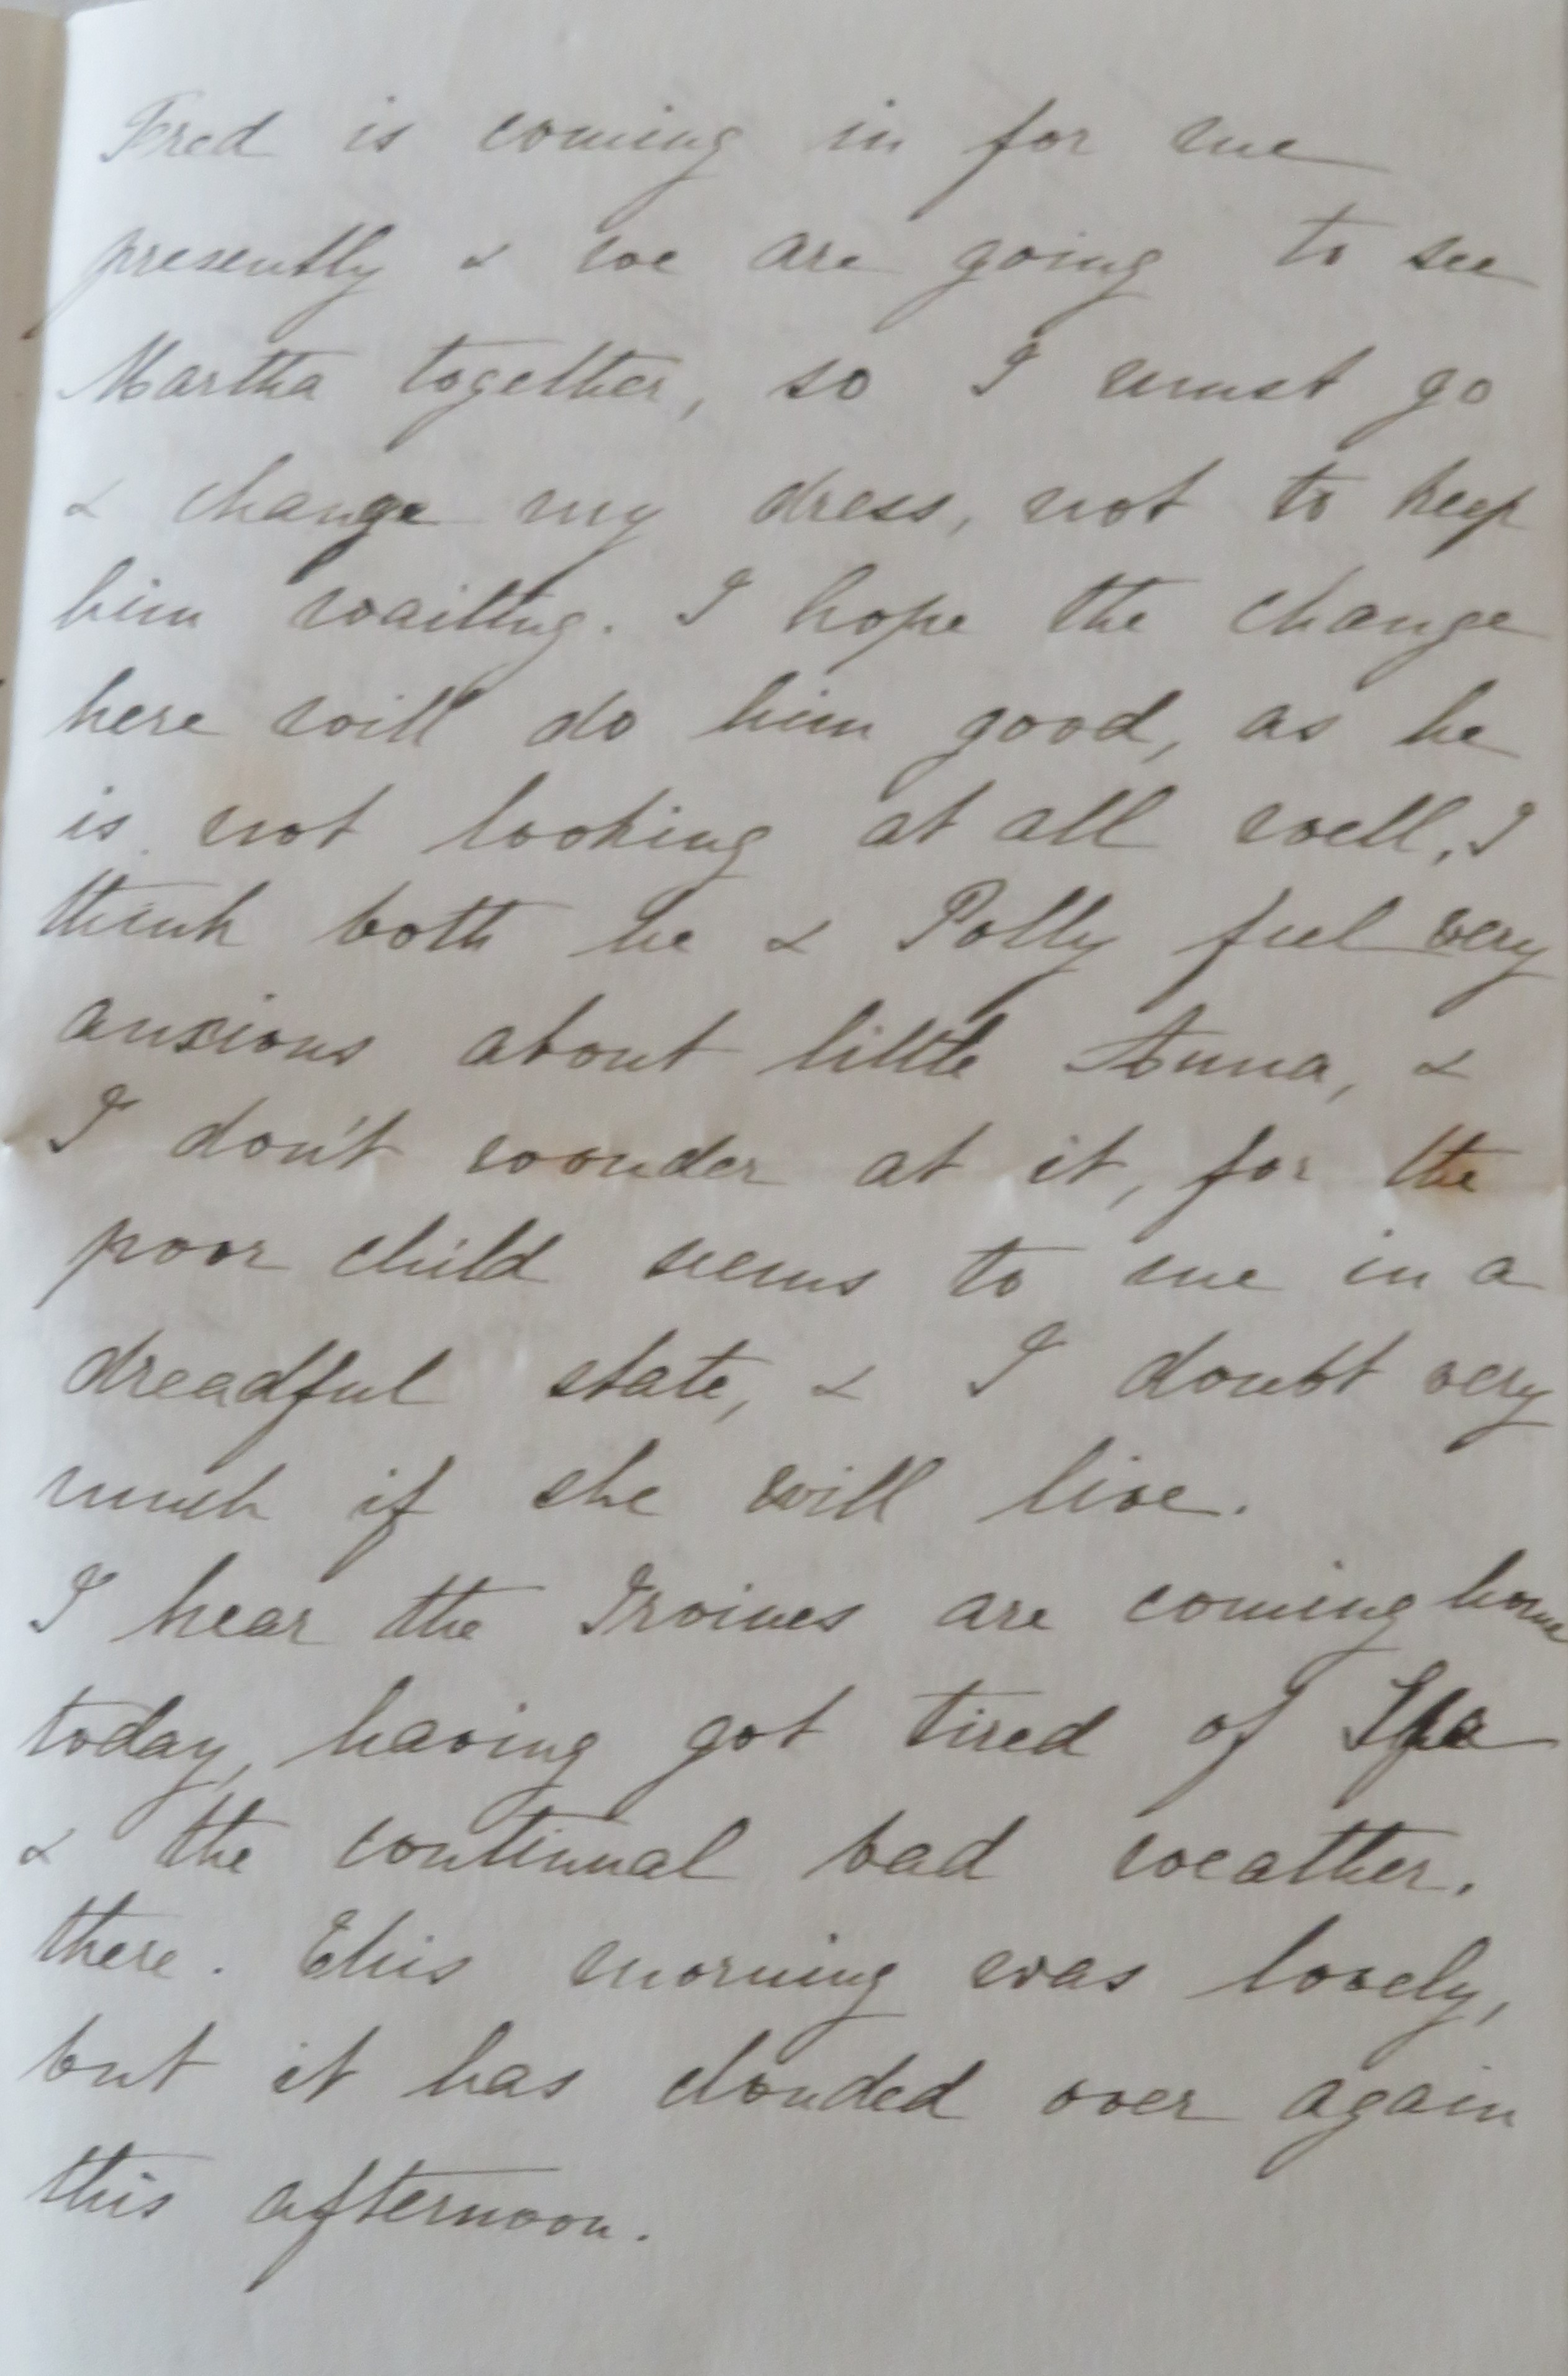 Fred is coming in for me
presently & we are going to see
Martha together, so I must go
& change my dress, not to keep
him waiting. I hope the change
here will do him good, as he
is not looking at all well, I
think both he & Polly feel very
anxious about little Anna, &
I don't wonder at it, for the
poor child seems to me in a
dreadful state, & I doubt very
much if she will live.
I hear the Irvines are coming home
today, having got tired of Spa
& the continual bad weather.
there. This morning was lovely,
but it has clouded over again
this afternoon.